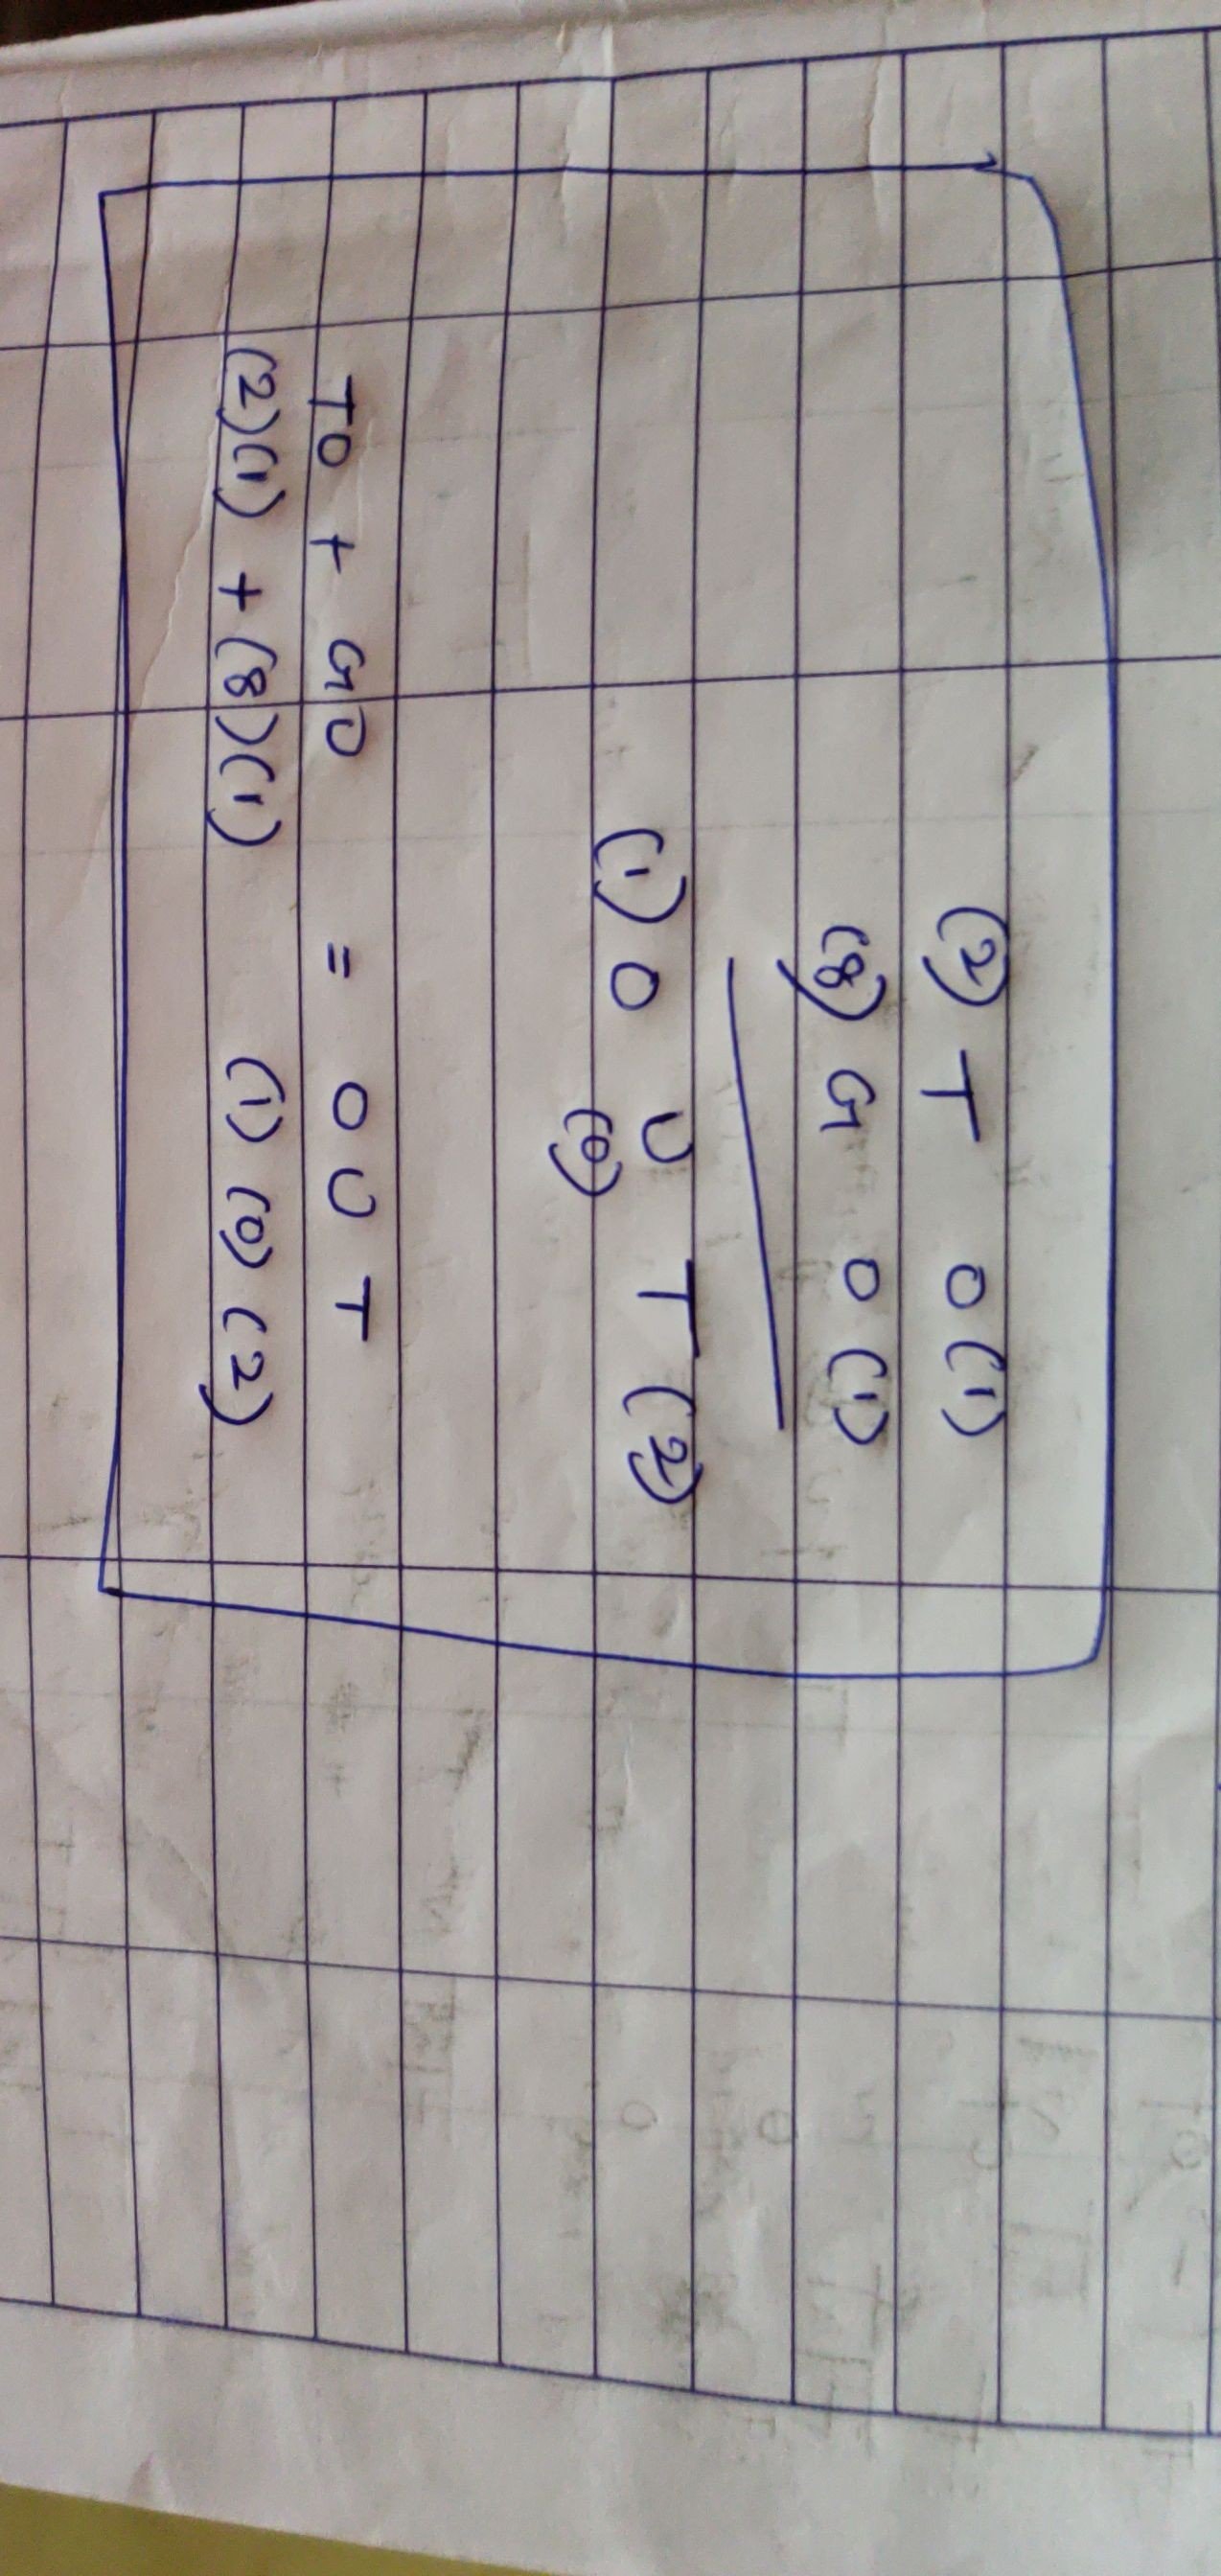 (2) T O (1)
(8) G O (1)
(1) O U T (2)
(0)
TO + GO = OUT
(2)(1) + (8)(1) (1) (0) (2)